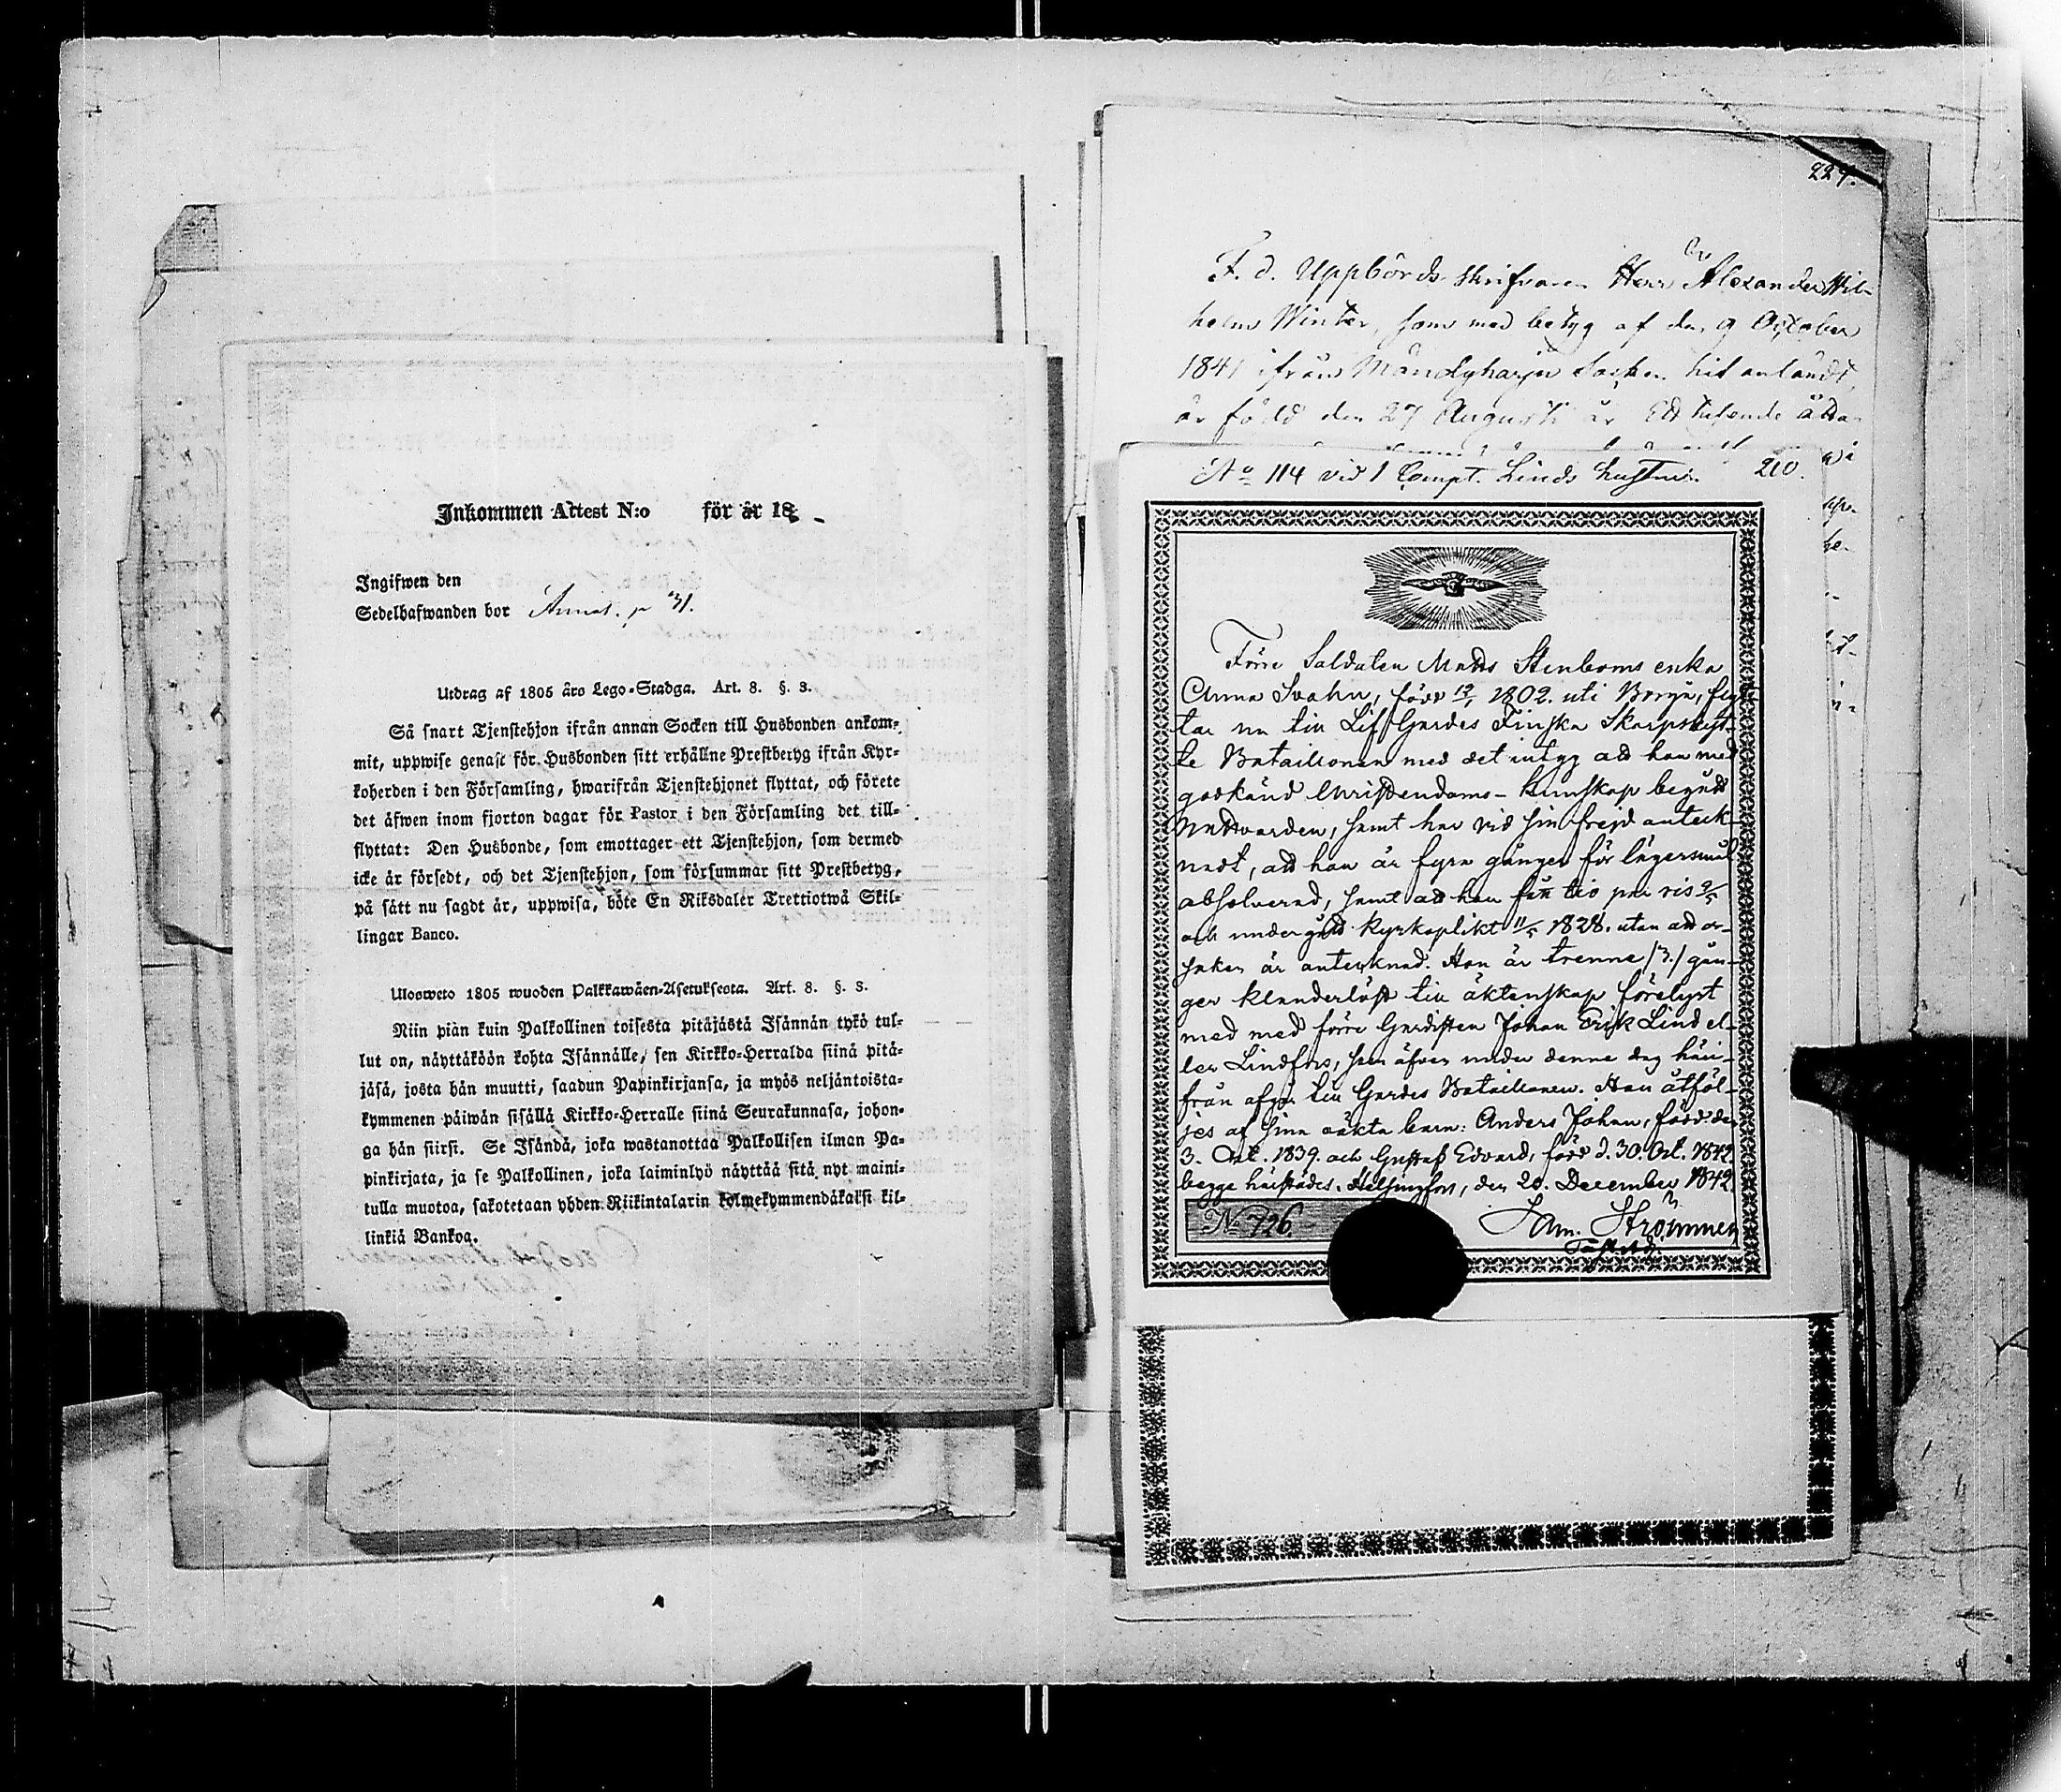 Inkommen Attest N:o för år 18
Ingifwen den
Sedelhafwanden bor Annat. p 31.
Utdrag af 1805 års Lego-Stadga. Art. 8. §. 3.
Så snart Tjenstehjon ifrån annan Socken till Husbonden ankom-
mit, uppwise genast för Husbonden sitt erhållne Prestbetyg ifrån Kyr-
koherden i den Församling, hwarifrån Tjenstehjonet flyttat, och förete
det åfwen inom fjorton dagar för Pastor i den Församling det till-
flyttat: Den Husbonde, som emottager ett Tjenstehjon, som dermed
icke är försedt, och det Tjenstehjon, som försummar sitt Prestbetyg,
på sätt nu sagdt är, uppwisa, böte En Riksdaler Trettiotwå Skil-
lingar Banco.
Ulosweto 1805 wuoden Palkkawäen-Asetuksesta. Art. 8. §. 3.
Niin piàn kuin Palkollinen toisesta pitäjästä Isännän tykö tul-
lut on, näyttäköön kohta Isännälle, sen Kirkko-Herralda siinä pitä-
jäsä, josta hän muutti, saadun Papinkirjansa, ja myös neljäntoista-
kymmenen päiwän sisällä Kirkko-Herralle siinä Seurakunnasa, johon-
ga hän siirsi. Se Isändä, joka wastanottaa Palkollisen ilman Pa-
pinkirjata, ja se Palkollinen, joka laiminlyö näyttää sitä nyt maini-
tulla muotoa, sakotetaan yhden Riikintalarin kolmekymmendäkaksi kil-
linkiä Bankoa.
227.
F. d. Uppbördsskrifvaren Herr Alexander Wil-
helm Winter, som med betyg af den 9 October
1841 ifrån Mändyharju Socken hit anländt,
är född den 27 Augusti år Ett tusende ådta-
No 114 vid 1 Compt. Linds hustru. 210.
Förre Soldaten Matts Stenboms enka
Anna Svahn, född 12/ 1802. uti Borgå, flyt-
tar nu till Lif Gardes Finska Skarpskyt-
te Bataillonen med det intyg att hon med
godkänd Christendoms-kunskap begådt
Nattvarden, samt har vid sin frejd anteck-
nadt, att hon är fyra gånger för lägersmål
absolverad, samt att hon fått tio par ris
och undergått kyrkoplikt 11/5 1828. utan att or-
saken är antecknad. Hon är trenne /3./ gån-
ger klanderlöst till äktenskap förelyst
med med förre Gardisten Johan Erik Lind el-
ler Lindfors, som äfven under denne dag häri-
från afgår till Gardes Bataillonen. Hon åtföl-
jes af sina oäkta barn: Anders Johan, född den
3. Okt. 1839. och Gustaf Edvard, född d. 30. Oct. 1842.
begge härstädes. Helsingfors, den 20. December 1842.
No 726.
Sam. Strömmer